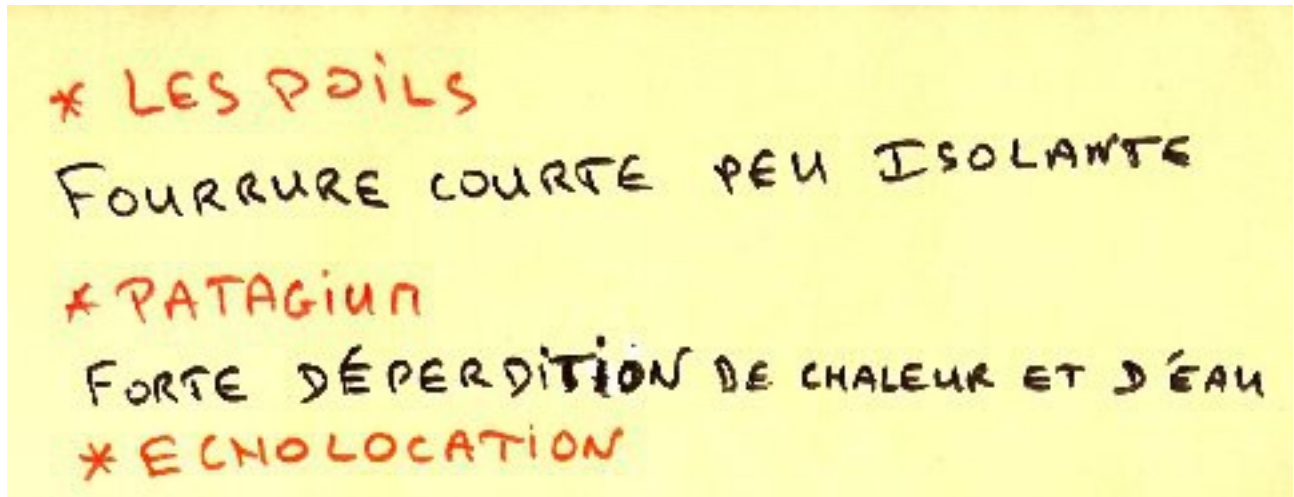 * LES POiLS
FOURRURE COURTE PEU ISOLANTE
* PATAGiUM
FORTE DÉPERDiTiON DE CHALEUR ET D'EAU
* ECHOLOCATiON